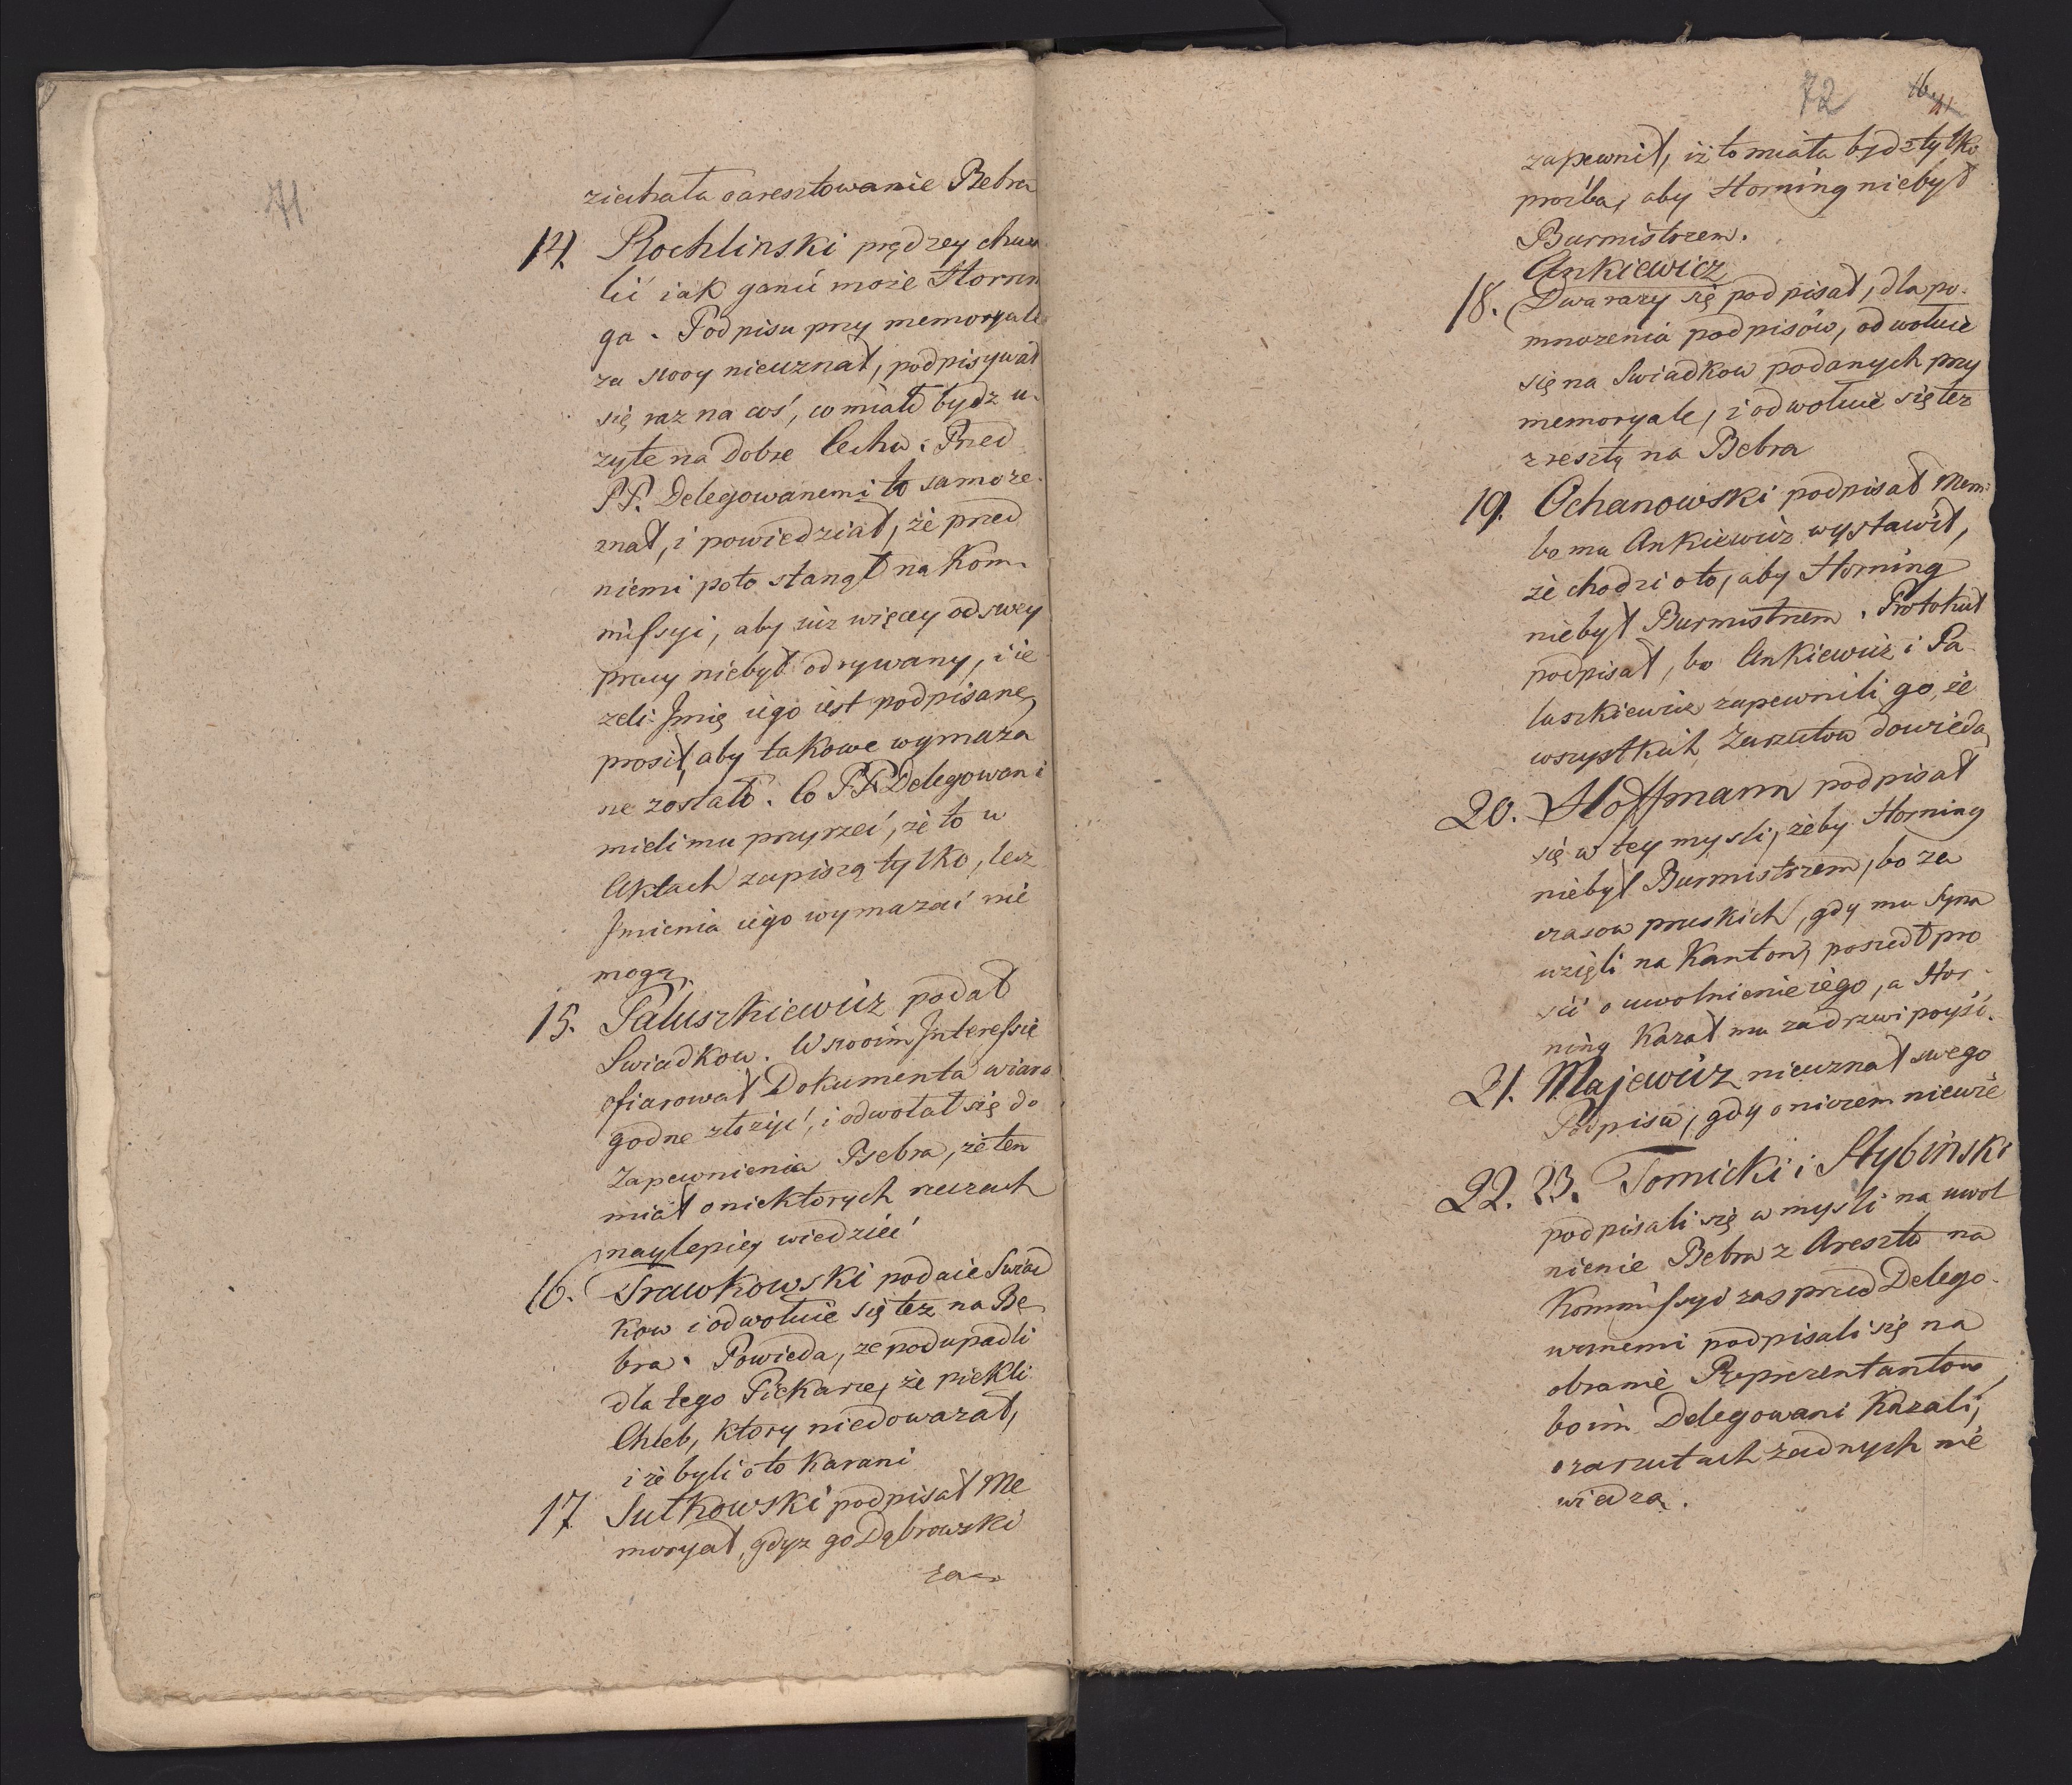 71
ziechała oaresztowanie Bebra
14. Rochlinski prędzey chwa
lić iak ganić może Hornin
ga. Podpisu przy memoryale
za swoy nieuznał, podpisywał
się raz na coś, co miało bydz u-
zyte na dobre Cechu. Przed
PP. Delegowanemi to samo ze-
znał, i powiedział, że przed
niemi poto stanął na Kom-
missyi, aby iuż więcey od swey
pracy niebył odrywany, i ie
zeli Imię iego iest podpisane,
prosił, aby takowe wymaza
ne zostało. Co PP. Delegowani
mieli mu przyrzec, że to w
Aktach zapiszą tylko, lecz
Imienia iego wymazać nie
mogą.
15. Paluszkiewicz podał
Swiadkow. W swoim Interessie
ofiarował Dokumenta wiaro
godne złożyć, i odwołał się do
Zapewnienia Bebra, że ten
miał o niektorych rzeczach
naylepiey wiedzieć
16. Trawkowski podaie Swiad
kow i odwołuie się też na Be
bra. Powieda, ze podupadli
dla tego Piekarze, że piekli
Chleb, ktory niedoważał,
i że byli oto karani
17 Sutkowski podpisał Me
moryał, gdyz go Dąbrowski
za-
72 16 41
zapewnił, iż to miała bydz tylko
prozba, aby Horning niebył
Burmistrzem.
Ankiewicz
18. Dwa razy się podpisał, dla po-
mnozenia podpisów, odwołuie
się na Swiadkow podanych przy
memoryale, i odwołuie się tez
zresztą na Bebra
19. Ochanowski podpisał Mem:
bo mu Ankiewicz wystawił,
że chodzi o to, aby Horning
niebył Burmistrzem. Protokuł
podpisał, bo Ankiewicz i Pa
luszkiewicz zapewnili go, że
wszystkich Zarzutow dowiedą
20. Hoffmann podpisał
się w tey mysli, żeby Horning
niebył Burmistrzem, bo za
czasow pruskich, gdy mu Syna
wzięli na Kanton, poszedł pro
sić o uwolnienie iego, a Hor-
ning kazał mu za drzwi poyść.
21. Majewicz nieuznał swego
Podpisu, gdy o niczem niewie
22. 23. Tomicki i Stybinski
podpisali się w mysli na uwol
nienie Bebra z Aresztu na
Kommissyi zas przed Delego-
wanemi podpisali się na
obranie Reprezentantow,
bo im Delegowani kazali,
o zarzutach żadnych nie
wiedzą.